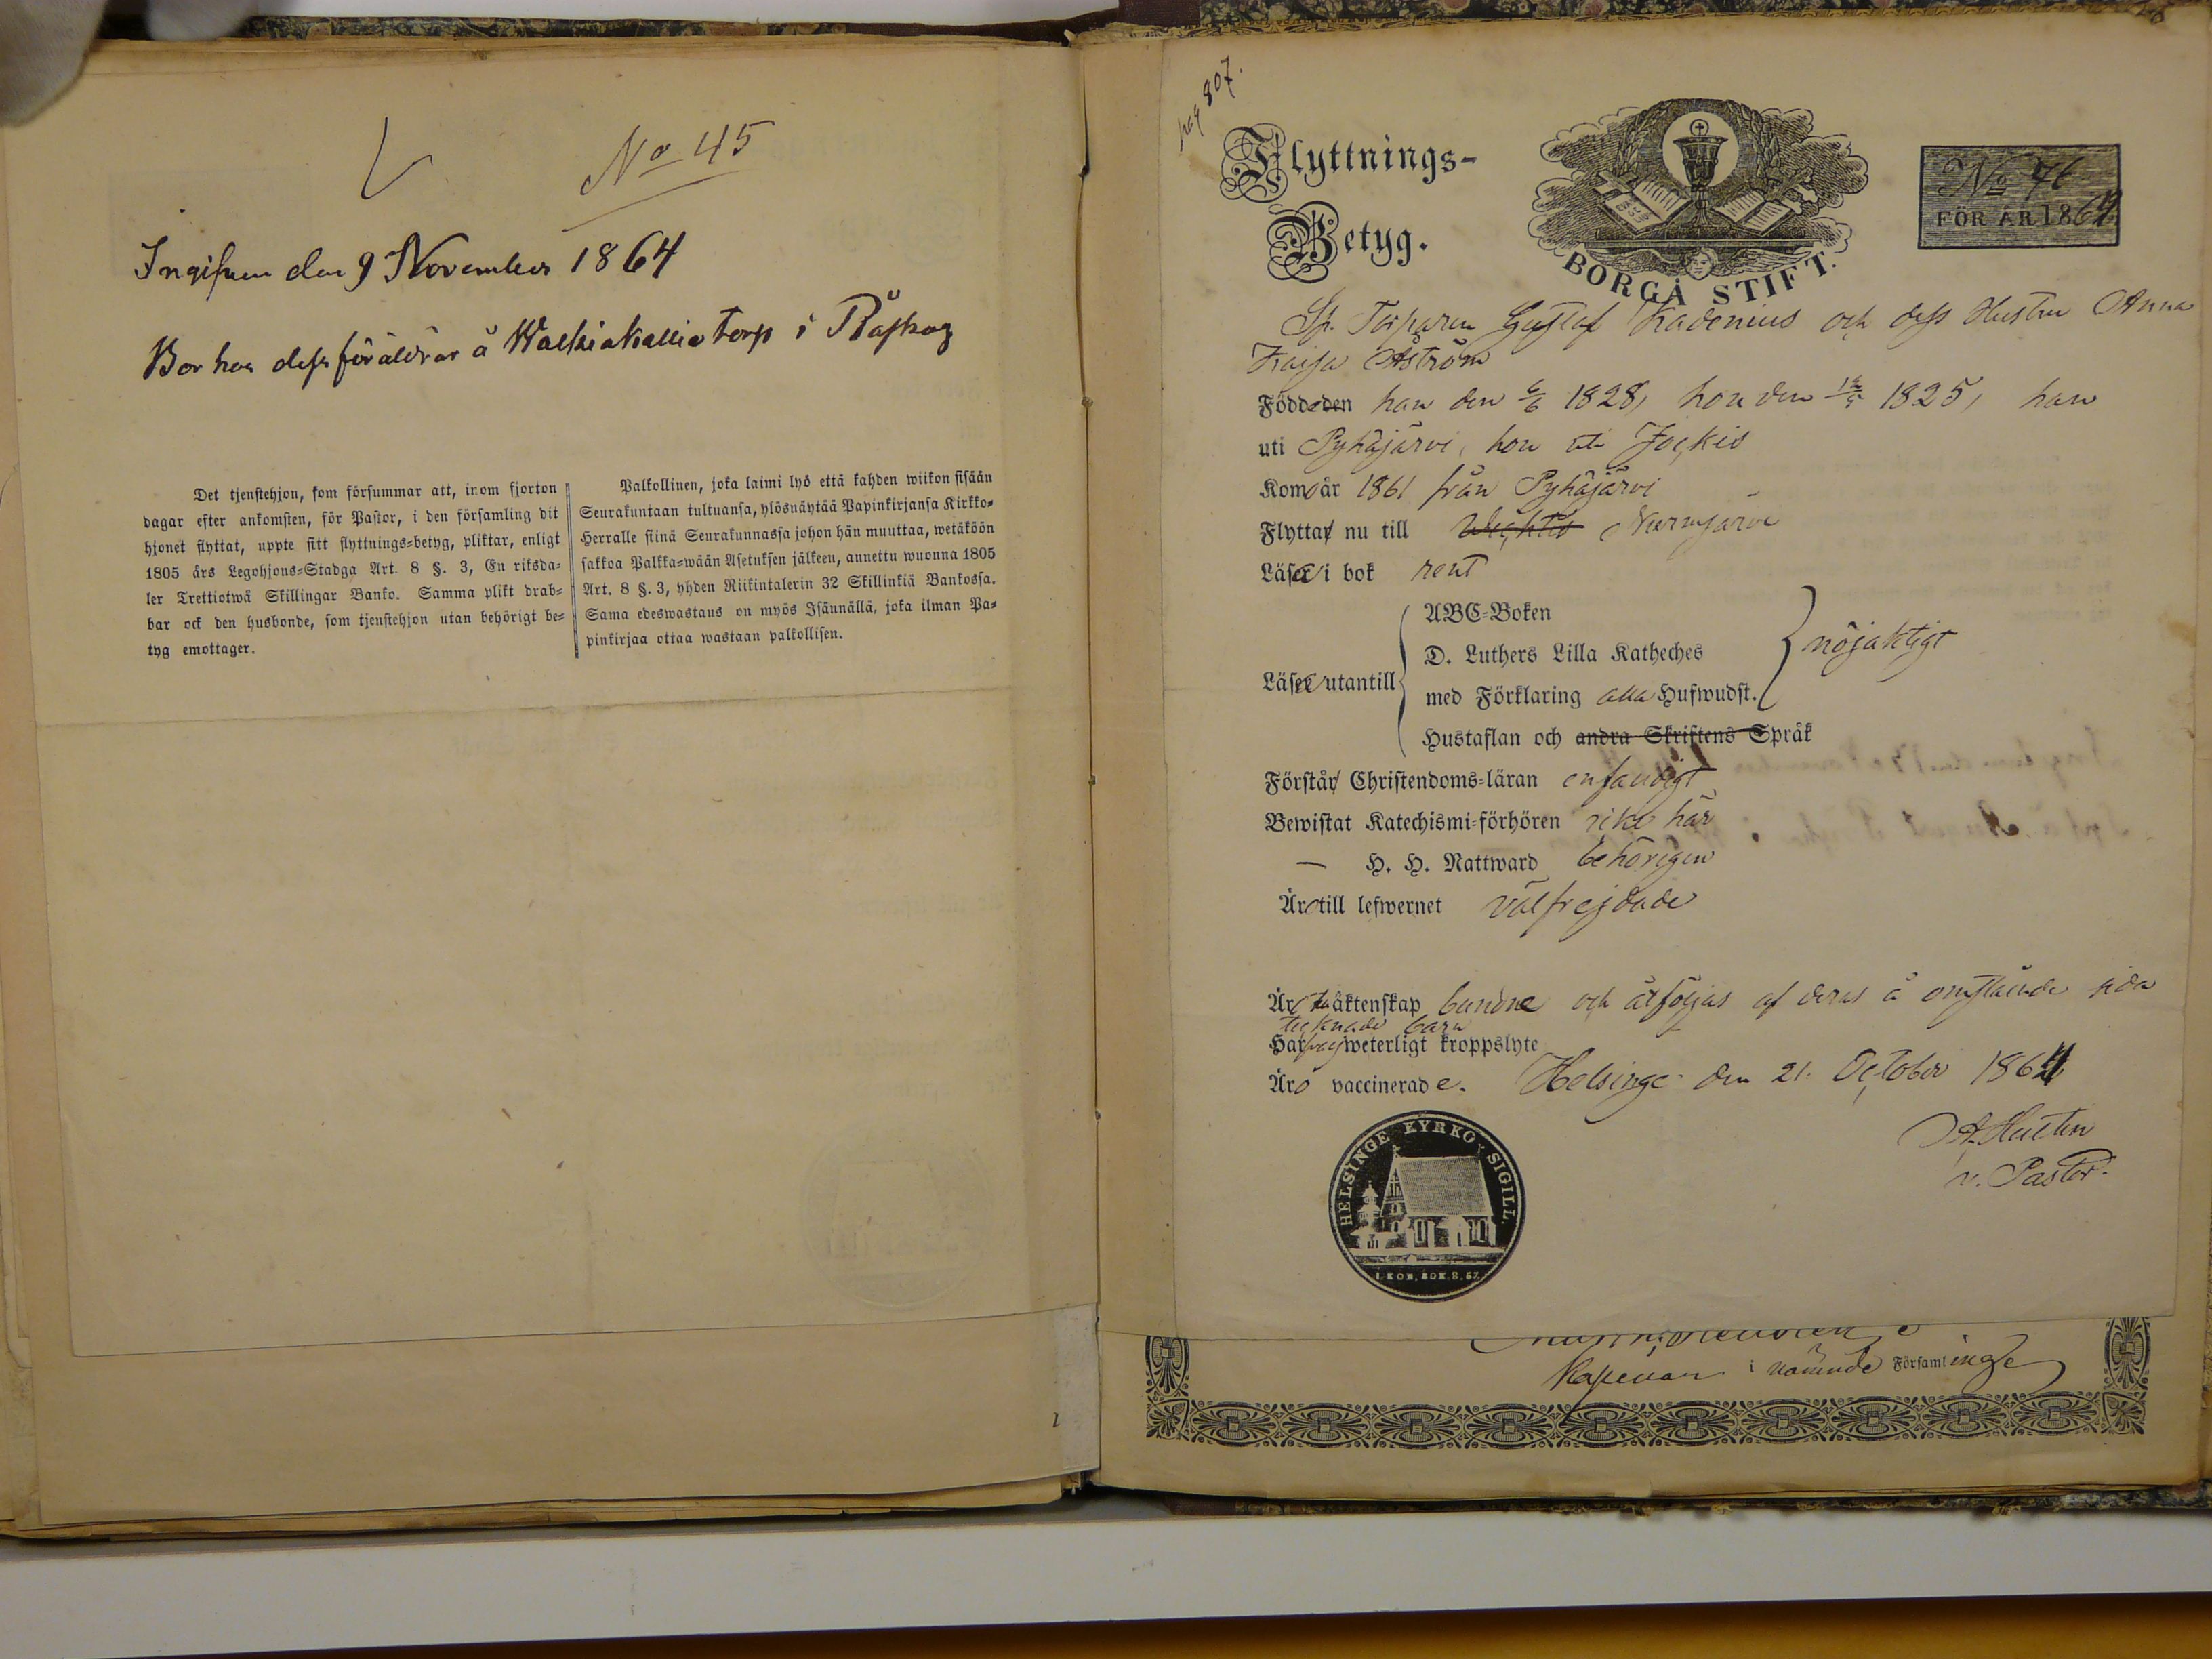 No 45
Ingifven den 9 November 1864
Bor hos dess föräldrar å Walkiakallio torp i Råskog
Det tjenstehjon, som försummar att, inom fjorton
dagar efter ankomsten, för Pastor, i den församling dit
hjonet flyttat, uppte sitt flyttnings=betyg, pliktar, enligt
1805 års Legohjons=Stadga Art. 8 §. 3, En riksda=
ler Trettiotwå Skillingar Banko. Samma plikt drab=
bar ock den husbonde, som tjenstehjon utan behörigt be=
tyg emottager.
Palkollinen, joka laimi lyö että kahden wiikon sisään
Seurakuntaan tultuansa, ylösnäytää Papinkirjansa Kirkko=
Herralle siinä Seurakunnassa johon hän muuttaa, wetäköön
sakkoa Palkka=wään Asetuksen jälkeen, annettu wuonna 1805
Art. 8 §. 3, yhden Riikintalerin 32 Skillinkiä Bankossa.
Sama edeswastaus on myös Isännällä, joka ilman Pa=
pinkirjaa ottaa wastaan palkollisen.
pag 807.
Flyttnings-
Betyg.
BORGÅ STIFT.
No 76
FÖR ÅR 1864
Sp. Torparen Gustaf Kadenius och dess Hustru Anna
Kaisa Åström
Födde den han den 6/6 1828, hon den 12/9 1825, han
uti Pyhäjärvi, hon uti Jockis
Komo år 1861 från Pyhäjärvi
Flytta nu till Wichtis Nurmjärvi
Läsa i bok rent
ABC=Boken
D. Luthers Lilla Katheches
med Förklaring alla Hufwudst.
nöjaktigt
Läsa utantill
Hustaflan och andra Skriftens Språk
Förstå Christendoms=läran enfaldigt
Bewistat Katechismi=förhören icke här
— H. H. Nattward behörigen
Äro till lefwernet välfrejdade
Äro till äktenskap bundne och åtföljas af deras å omstående sida
tecknade barn
Har ej weterligt kroppslyte
Äro vaccinerade. Helsinge den 21. October 1864
v. Pastor.
HELSINGE KYRKO SIGILL.
1. KON. BOK. 8. 57.
Kapellan i nämnde Församlinge